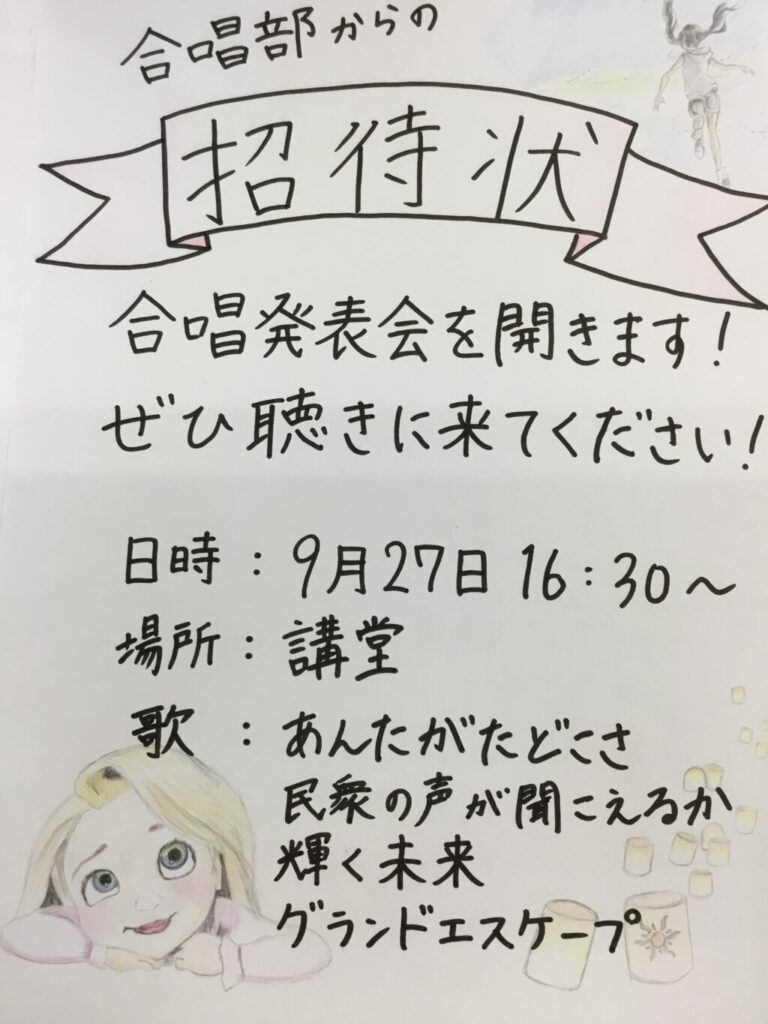 合唱部からの
招待状
合唱発表会を開きます!
ぜひ聴きに来てください!
日時:9月27日 16:30〜
場所:講堂
歌:あんたがたどこさ
民衆の声が聞こえるか
輝く未来
グランドエスケープ